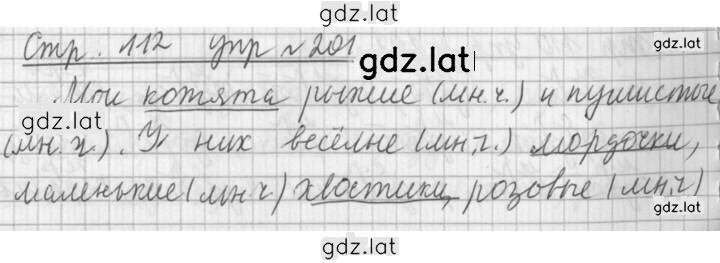 gdz.lat
Стр. 112 упр № 201
gdz.lat
Мои котята рыжие (мн.ч.) и пушистые
gdz.lat
(мн.ч.). У них весёлые (мн.ч.) мордочки,
маленькие (мн.ч.) хвостики, розовые (мн.ч)
gdz.lat
gdz.lat